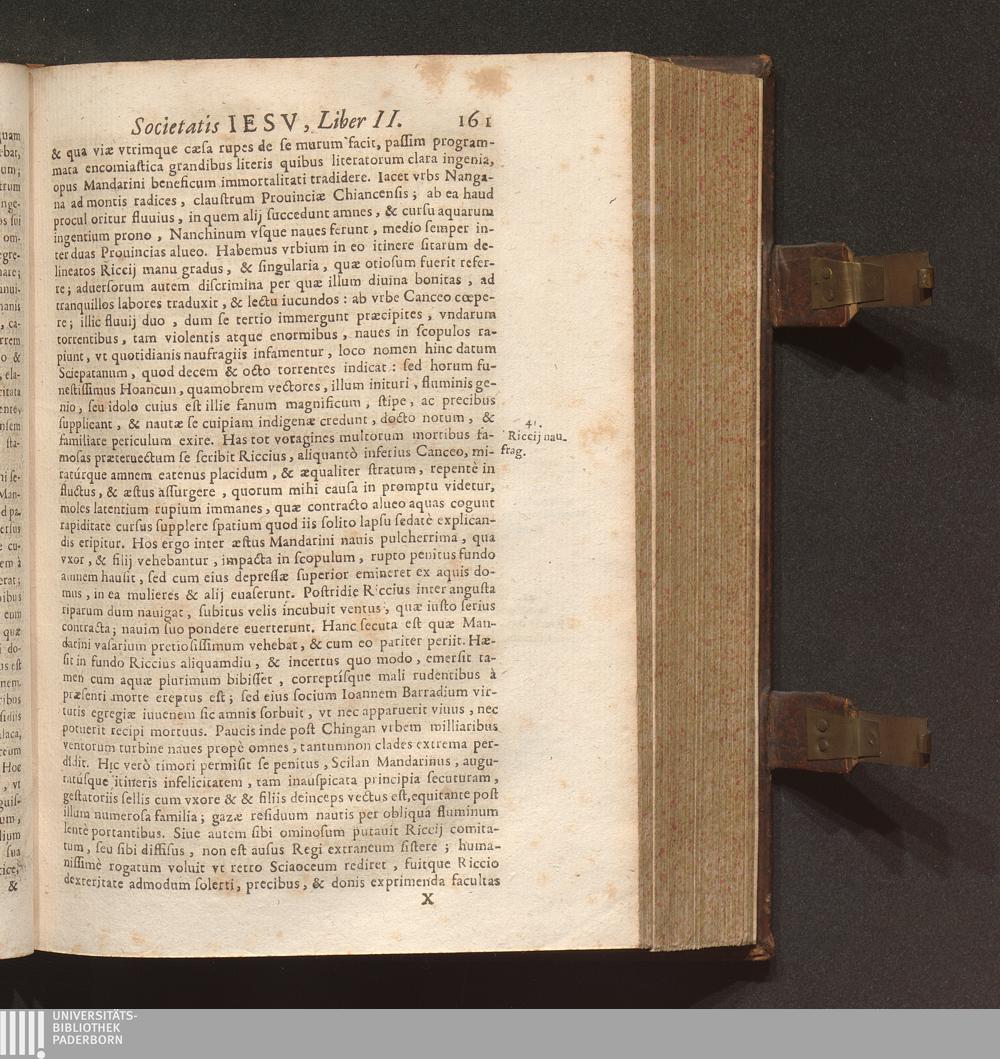 Societatis IESV, Liber II. 161
& qua viæ vtrimque cæsa rupes de se murum facit, passim program-
mata encomiastica grandibus literis quibus literatorum clara ingenia,
opus Mandarini beneficum immortalitati tradidere. Iacet vrbs Nanga-
na ad montis radices, claustrum Prouinciæ Chiancensis; ab ea haud
procul oritur fluuius, in quem alij succedunt amnes, & cursu aquarum
ingentium prono, Nanchinum vsque naues ferunt, medio semper in-
ter duas Prouincias alueo. Habemus vrbium in eo itinere sitarum de-
lineatos Riccij manu gradus, & singularia, quæ otiosum fuerit refer-
re; aduersorum autem discrimina per quæ illum diuina bonitas, ad
tranquillos labores traduxit, & lectu iucundos: ab vrbe Canceo cœpe-
re; illic fluuij duo, dum se tertio immergunt præcipites, vndarum
torrentibus, tam violentis atque enormibus, naues in scopulos ra-
piunt, vt quotidianis naufragiis infamentur, loco nomen hinc datum
Sciepatanum, quod decem & octo torrentes indicat: sed horum fu-
nestissimus Hoancun, quamobrem vectores, illum inituri, fluminis ge-
nio, seu idolo cuius est illic fanum magnificum, stipe, ac precibus
supplicant, & nautæ se cuipiam indigenæ credunt, docto notum, &
familiare periculum exire. Has tot voragines multorum mortibus fa-
mosas præteruectum se scribit Riccius, aliquantò inferius Canceo, mi-
ratúrque amnem eatenus placidum, & æqualiter stratum, repentè in
fluctus, & æstus assurgere, quorum mihi causa in promptu videtur,
moles latentium rupium immanes, quæ contracto alueo aquas cogunt
rapiditate cursus supplere spatium quod iis solito lapsu sedatè explican-
dis eripitur. Hos ergo inter æstus Mandarini nauis pulcherrima, qua
vxor, & filij vehebantur, impacta in scopulum, rupto penitus fundo
amnem hausit, sed cum eius depressæ superior emineret ex aquis do-
mus, in ea mulieres & alij euaserunt. Postridie Riccius inter angusta
riparum dum nauigat, subitus velis incubuit ventus, quæ iusto serius
contracta; nauim suo pondere euerterunt. Hanc secuta est quæ Man-
darini vasarium pretiosissimum vehebat, & cum eo pariter periit. Hæ-
sit in fundo Riccius aliquamdiu, & incertus quo modo, emersit ta-
men cum aquæ plurimum bibisset, correptísque mali rudentibus à
præsenti morte ereptus est; sed eius socium Ioannem Barradium vir-
tutis egregiæ iuuenem sic amnis sorbuit, vt nec apparuerit viuus, nec
potuerit recipi mortuus. Paucis inde post Chingan vrbem milliaribus
ventorum turbine naues propè omnes, tantumnon clades extrema per-
didit. Hic verò timori permisit se penitus, Scilan Mandarinus, augu-
ratúsque itineris infelicitatem, tam inauspicata principia secuturam,
gestatoriis sellis cum vxore & & filiis deinceps vectus est, equitante post
illum numerosa familia; gazæ residuum nautis per obliqua fluminum
lentè portantibus. Siue autem sibi ominosum putauit Riccij comita-
tum, seu sibi diffisus, non est ausus Regi extraneum sistere; huma-
nissimè rogatum voluit vt retro Sciaoceum rediret, fuitque Riccio
dexteritate admodum solerti, precibus, & donis exprimenda facultas
X
41.
Riccij nau-
frag.
UNIVERSITÄTS-
BIBLIOTHEK
PADERBORN